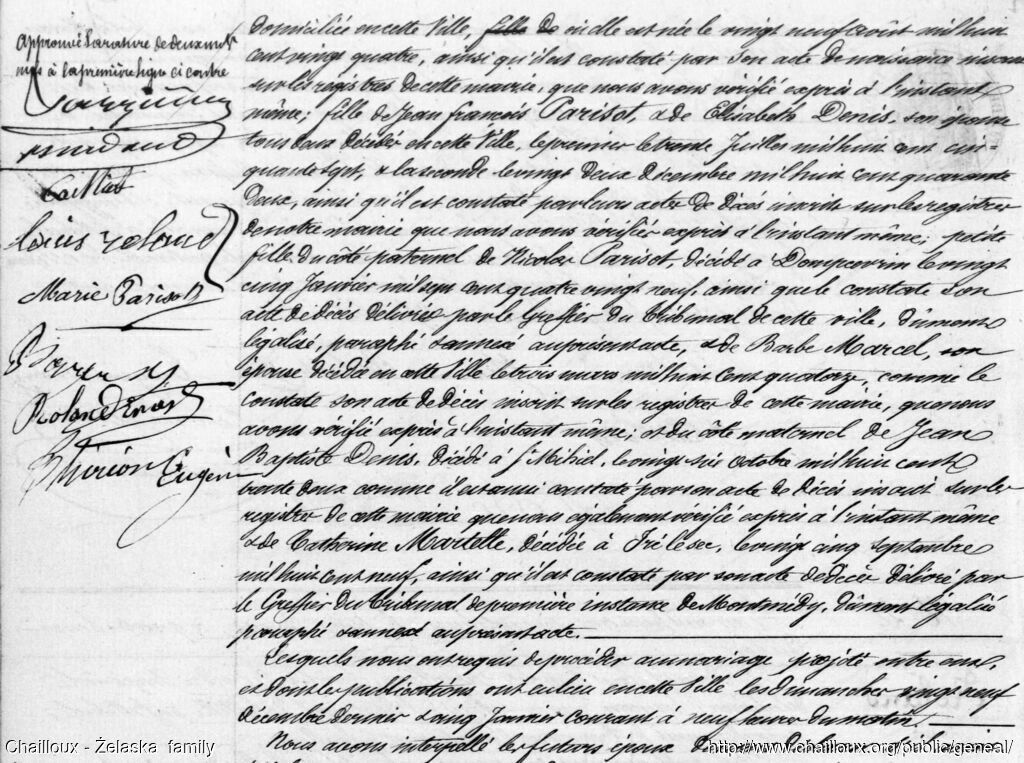 Approuvé la rature de deux mots
nuls à la première ligne ci contre
Caillat
Louis roland
Marie Parisot
Roland
Thirion Eugène
domiciliée en cette Ville, fille de où elle est née le vingt neuf août mil huit
cent vingt quatre, ainsi qu'il est constaté par son acte de naissance inscrit
sur les registres de cette mairie, que nous avons vérifié exprès à l'instant
même; fille de Jean françois Parisot, & de Elisabeth Denis, son épouse
tous deux décédés en cette Ville, le premier le trente Juillet mil huit cent cin-
quante sept, & la seconde le vingt deux décembre mil huit cent quarante
Deux, ainsi qu'il est constaté par leurs actes de décès inscrits sur les registres
de notre mairie que nous avons vérifiés exprès à l'instant même; petite
fille du côté paternel de Nicolas Parisot, décédé à Dompcevrin le vingt
cinq Janvier mil sept cent quatre vingt neuf, ainsi que le constate son
acte de décès délivré par le Greffier du tribunal de cette ville, dûment
légalisé, paraphé & annexé au présent acte, & de Barbe Marcel, son
épouse décédée en cette Ville le trois mars mil huit cent quatorze, comme le
constate son acte de décès inscrit sur les registres de cette mairie, que nous
avons vérifié exprès à l'instant même; et du côté maternel de Jean
Baptiste Denis, décédé à St Mihiel, le vingt six octobre mil huit cent
trente deux comme il est aussi constaté par son acte de décès inscrit sur les
registres de cette mairie que nous également vérifié exprès à l'instant même
& de Catherine Martelle, décédée à , le vingt cinq septembre
mil huit cent neuf, ainsi qu'il est constaté par son acte de décès délivré par
le Greffier du tribunal de première instance de Montmédy, dûment légalisé
paraphé & annexé au présent acte.
Lesquels nous ont requis de procéder au mariage projeté entre eux,
et dont les publications ont eu lieu en cette Ville les dimanches vingt neuf
décembre dernier & cinq Janvier courant à neuf heures du matin.
Nous avons interpellé les futurs époux
Chailloux - Želaska family
http://www.chailloux.org/public/geneal/